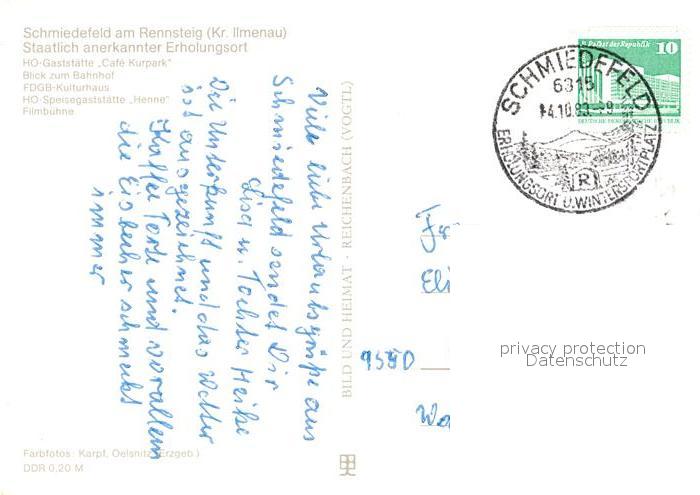 Schmiedefeld am Rennsteig (Kr. Ilmenau)
Staatlich anerkannter Erholungsort
HO-Gaststätte „Café Kurpark"
Blick zum Bahnhof
FDGB-Kulturhaus
HO-Speisegaststätte „Henne"
Filmbühne
Viele liebe Urlaubsgrüße aus
Schmiedefeld sendet Dir
Lisa u. Tochter Heike
Die Unterkunft und das Wetter
ist ausgezeichnet.
Kaffee Torte und vorallem
die Eisbecher schmeckt
immer
BILD UND HEIMAT · REICHENBACH (VOGTL)
Palast der Republik 10
DEUTSCHE DEMOKRATISCHE REPUBLIK
SCHMIEDEFELD
6315
14.10.83-9
R
ERHOLUNGSORT U. WINTERSPORTPLATZ
Eli
privacy protection
Datenschutz
Farbfotos: Karpf, Oelsnitz (Erzgeb.)
DDR 0,20 M